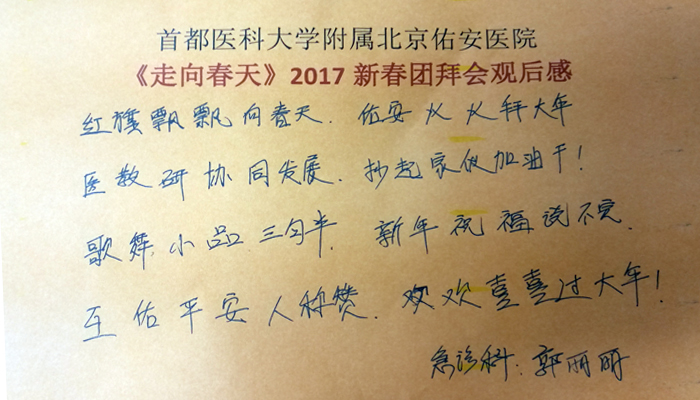 首都医科大学附属北京佑安医院
《走向春天》2017 新春团拜会观后感
红旗飘飘向春天. 佑安人人拜大年
医教研协同发展. 抄起家伙加油干!
歌舞小品三句半. 新年祝福说不完.
互佑平安人称赞. 欢欢喜喜过大年!
急诊科: 郭丽丽